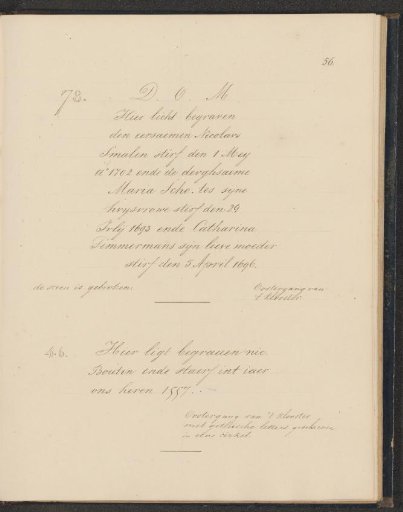 56.
72.
D. O. M
Hier licht begraven
den eersaemen Nicolaus
Smalen stirf den 1 Mey
a° 1702 ende de deughsaeme
Maria Sche.tes syne
huysvrowe stirf den 29
July 1693 ende Catharina
Timmermans syn lieve moeder
stirf den 5 April 1696.
de steen is gebroken.
Oostergang van
't klooster.
Heer ligt begrauen nie
Boutin ende staerf int iaer
ons heren 1557.
Oostergang van 't klooster
met gothische letters geschreven
in eene cirkel.